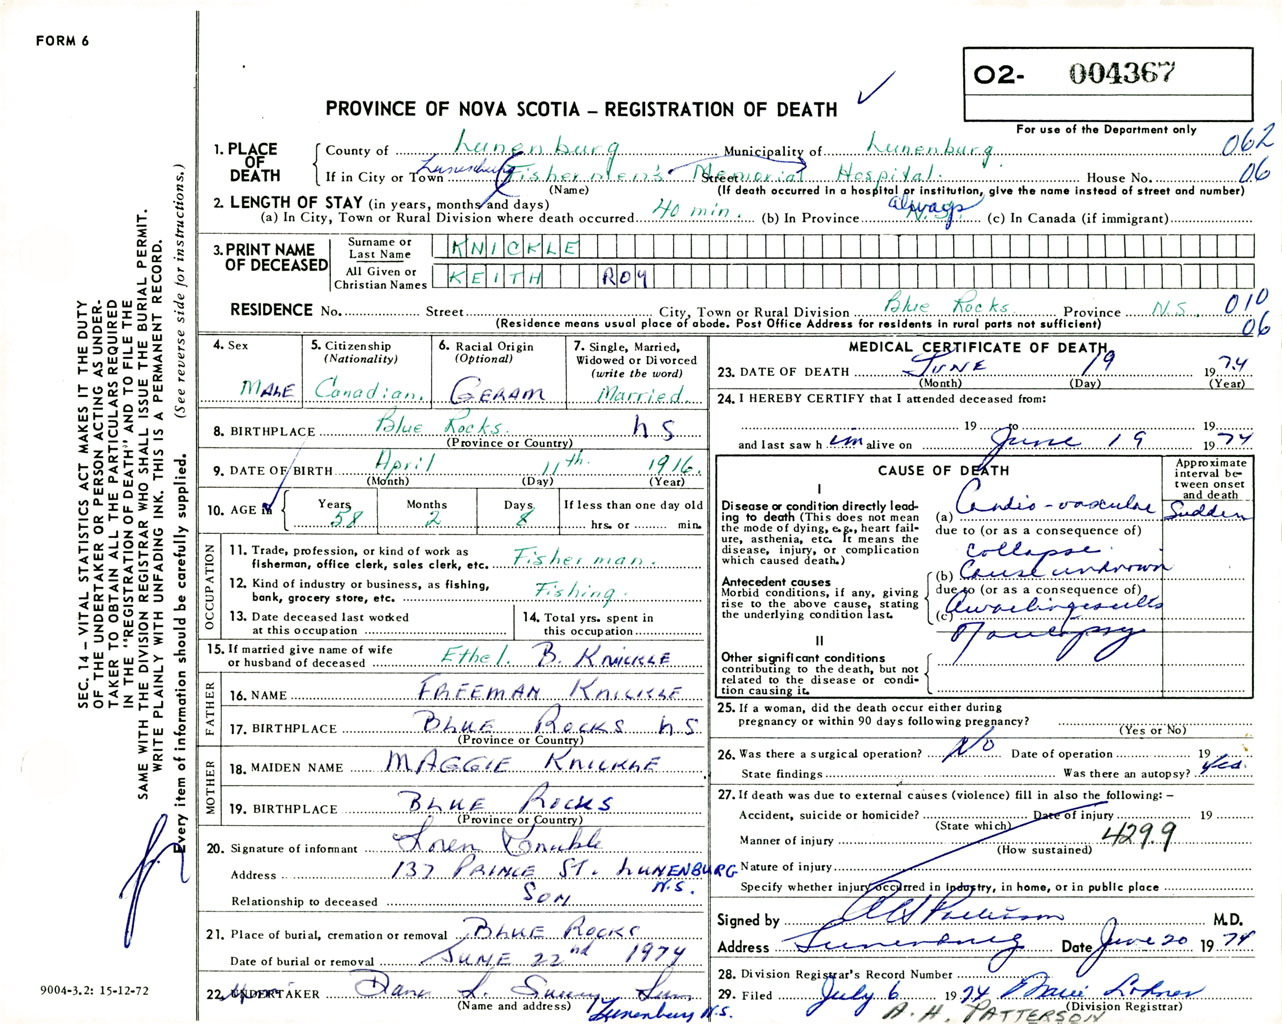 FORM 6
O2- 004367
PROVINCE OF NOVA SCOTIA – REGISTRATION OF DEATH
For use of the Department only
1. PLACE OF DEATH
County of Lunenburg Municipality of Lunenburg 062
If in City or Town Lunenburg Fishermen's Memorial Hospital Street House No. 06
(Name) (If death occurred in a hospital or institution, give the name instead of street and number)
2. LENGTH OF STAY (in years, months and days)
(a) In City, Town or Rural Division where death occurred 40 min. (b) In Province always N.S. (c) In Canada (if immigrant)
3. PRINT NAME OF DECEASED
Surname or Last Name KNICKLE
All Given or Christian Names KEITH ROY
RESIDENCE No. Street City, Town or Rural Division Blue Rocks Province N.S. 010
(Residence means usual place of abode. Post Office Address for residents in rural parts not sufficient) 06
4. Sex MALE
5. Citizenship (Nationality) Canadian.
6. Racial Origin (Optional) GERAM
7. Single, Married, Widowed or Divorced (write the word) Married.
8. BIRTHPLACE Blue Rocks. N S
(Province or Country)
9. DATE OF BIRTH April 11th 1916.
(Month) (Day) (Year)
10. AGE Years 58 Months 2 Days 8 If less than one day old hrs. or min.
OCCUPATION
11. Trade, profession, or kind of work as fisherman, office clerk, sales clerk, etc. Fisherman.
12. Kind of industry or business, as fishing, bank, grocery store, etc. Fishing.
13. Date deceased last worked at this occupation
14. Total yrs. spent in this occupation
15. If married give name of wife or husband of deceased Ethel. B. KNICKLE
FATHER
16. NAME FREEMAN KNICKLE
17. BIRTHPLACE BLUE ROCKS N S
(Province or Country)
MOTHER
18. MAIDEN NAME MAGGIE KNICKLE
19. BIRTHPLACE BLUE ROCKS
(Province or Country)
20. Signature of informant Loren Knickle
Address 137 PRINCE ST. LUNENBURG N.S.
Relationship to deceased SON
21. Place of burial, cremation or removal BLUE ROCKS
Date of burial or removal JUNE 22nd 1974
22. UNDERTAKER
(Name and address) Lunenburg N.S.
MEDICAL CERTIFICATE OF DEATH
23. DATE OF DEATH JUNE 19 1974
(Month) (Day) (Year)
24. I HEREBY CERTIFY that I attended deceased from:
19 to 19
and last saw him alive on June 19 1974
CAUSE OF DEATH
Approximate interval between onset and death
I
Disease or condition directly leading to death (This does not mean the mode of dying, e.g., heart failure, asthenia, etc. It means the disease, injury, or complication which caused death.)
(a) Cardio-vascular Sudden
due to (or as a consequence of)
collapse
Antecedent causes
Morbid conditions, if any, giving rise to the above cause, stating the underlying condition last.
(b) Cause unknown
due to (or as a consequence of)
(c) Awaiting results
of autopsy
II
Other significant conditions
contributing to the death, but not related to the disease or condition causing it.
25. If a woman, did the death occur either during pregnancy or within 90 days following pregnancy?
(Yes or No)
26. Was there a surgical operation? No Date of operation 19
State findings Was there an autopsy? Yes.
27. If death was due to external causes (violence) fill in also the following: –
Accident, suicide or homicide? Date of injury 19
(State which)
Manner of injury 429.9
(How sustained)
Nature of injury
Specify whether injury occurred in Industry, in home, or in public place
Signed by A H Patterson M.D.
Address Lunenburg Date June 20 1974
28. Division Registrar's Record Number
29. Filed July 6 1974
(Division Registrar)
A. H. PATTERSON
SEC. 14 – VITAL STATISTICS ACT MAKES IT THE DUTY
OF THE UNDERTAKER OR PERSON ACTING AS UNDER-
TAKER TO OBTAIN ALL THE PARTICULARS REQUIRED
IN THE "REGISTRATION OF DEATH" AND TO FILE THE
SAME WITH THE DIVISION REGISTRAR WHO SHALL ISSUE THE BURIAL PERMIT.
WRITE PLAINLY WITH UNFADING INK. THIS IS A PERMANENT RECORD.
Every item of information should be carefully supplied. (See reverse side for instructions.)
9004-3.2: 15-12-72